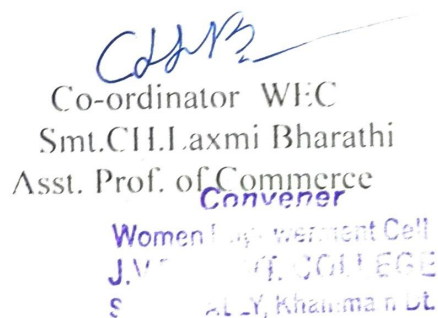 Co-ordinator WEC
Smt.CH.Laxmi Bharathi
Asst. Prof. of Commerce
Convener
Women Cell
COLLEGE
Khammam Dt.